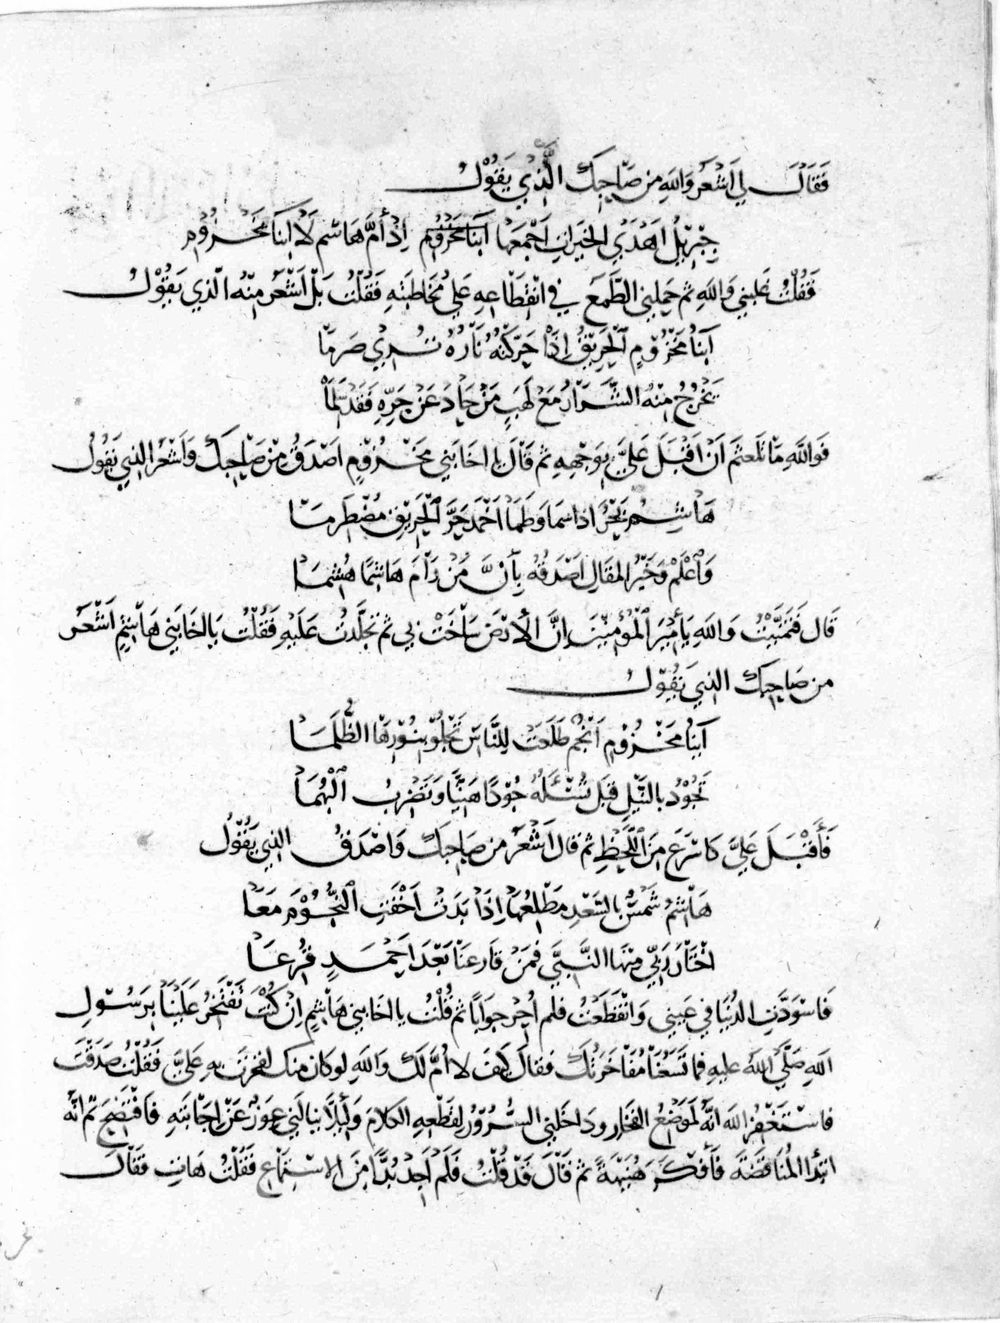 فَقَالَ لي اَشْعَرُ وَاللهِ مِن صَاحِبِكَ الَّذِي يَقُوْلُ
جِبْرِيْلُ اَهْدَى الخَيْرَاتِ اَجْمَعَهَا اَبْنَا مَخْزُوْمٍ اِذْ أَمَّ هَاشِم لَا ابْنَا مَخْزُوْمِ
فَقُلْتُ غَلَبَني وَاللهِ ثم حَمَلَني الطَّمَع في انْقِطَاعِهِ عَلي مُخَاطَبَتِهِ فَقُلْتُ بَلْ اَشْعَرُ مِنْهُ الّذي يَقُوْلُ
اَبْنَاءُ مَخْزُوْمٍ الْحَرِيْقُ اِذَا حَرَّكْتَهُ نَارُهُ تُرَي ضَرَمَا
يَخْرُجُ مِنْهُ الشَّرَارُ مَعْ لَهَبٍ مَنْ حَادَ عَنْ حَرِّهِ فَقَدْ سَلِمَا
فَوَاللَّهِ مَا تَلَعْثَمَ اَنْ اقْبَلَ عَلَيَّ بِوَجْهِهِ ثم قَالَ يا اخَا بَنِي مَخْزُوْمٍ اصْدَقُ مِنْ صَاحِبِكَ وَاَشْعَرُ الذي يَقُوْلُ
هَاشِمُ بَحْرٌ اذا سَمَا وَطَمَا اَخْمَدَ حَرَّ الْحَرِيْقِ مُضْطَرِمَا
وَاعْلَمْ وَخَيْرُ المقَالِ اصْدَقُهُ بِأَنَّ مَنْ رَامَ هَاشِمًا هُشِمَا
قَال فَتَمَنَّيْتُ وَاللهِ يَا أَمِيْرَ الْمُؤْمِنِيْنَ اِنَّ الْأَرْضَ سَاخَتْ بي ثم تجلَّدتُ عَلَيْهِ فَقُلْتُ يَا اخَا بَني هَاشِمٍ اَشْعَرُ
من صَاحِبِكَ الذي يَقُوْلُ
اَبْنَاءُ مَخْزُوْمٍ اَنْجُمٌ طَلَعَت لِلنَّاسِ تَجْلُوْ بِنُوْرِهَا الظُّلَمَا
تَجُوْدُ بِالنَّيْلِ قَبْل تُسْئَلَهُ جُوْدًا هَنِيًّا وَتَضْرِبُ الْبُهَمَا
فَأَقْبَلَ عَلَيَّ كَاسْرَعَ مِنَ اللَّحْظِ ثم قال اَشْعَرُ من صَاحِبِكَ وَاصْدَقُ الذي يَقُوْلُ
هَاشِمُ شَمْسٌ بالسَّعْدِ مَطْلَعُهَا اِذَا بَدَتْ اَخْفَتِ النُّجُوْمَ مَعَا
اخْتَارَ رَبّي مِنْهَا النَّبِيَّ فَمَنْ قَارَعَنَا بَعْدَ احْمَدٍ قُرِعَا
فَاسْوَدَّتِ الدُنْيَا في عَيني وَانْقَطَعْتُ فلم أُحِرْ جوَاباً ثم قُلْتُ يا اخَا بني هَاشِمٍ اِنْ كُنْتَ تَفْتَخِرُ عَلَيْنَا بِرَسُوْلِ
اللهِ صَلّي اللهُ عليهِ فما تَسَعُنَا مُفَاخَرَتُكَ فقال كَيْفَ لا اُمَّ لَكَ وَاللهِ لو كان مِنكَ لفخرتَ بهِ عَلَيَّ فَقُلْتُ صَدَقْتَ
فاسْتَغْفِرُ الله انَّهُ لَمَوْضِعُ الفَخَارِ ودَاخَلَني السُّرُوْرُ لِقَطْعِهِ الكَلامَ وَلِئَلَّا ينالَني عوزٌ عَنْ اِجَابَتِهِ فَافْتَضِحَ ثم انَّهُ
ابْتَدَا المُنَاقَضَةَ فَأَفْكَرَ هُنَيْهَةً ثم قَالَ قَدْ قُلْتُ فَلَم اَجِدْ بُدَّا مِنَ الاسْتِمَاعِ فَقُلْتُ هَاتِ فَقَالَ